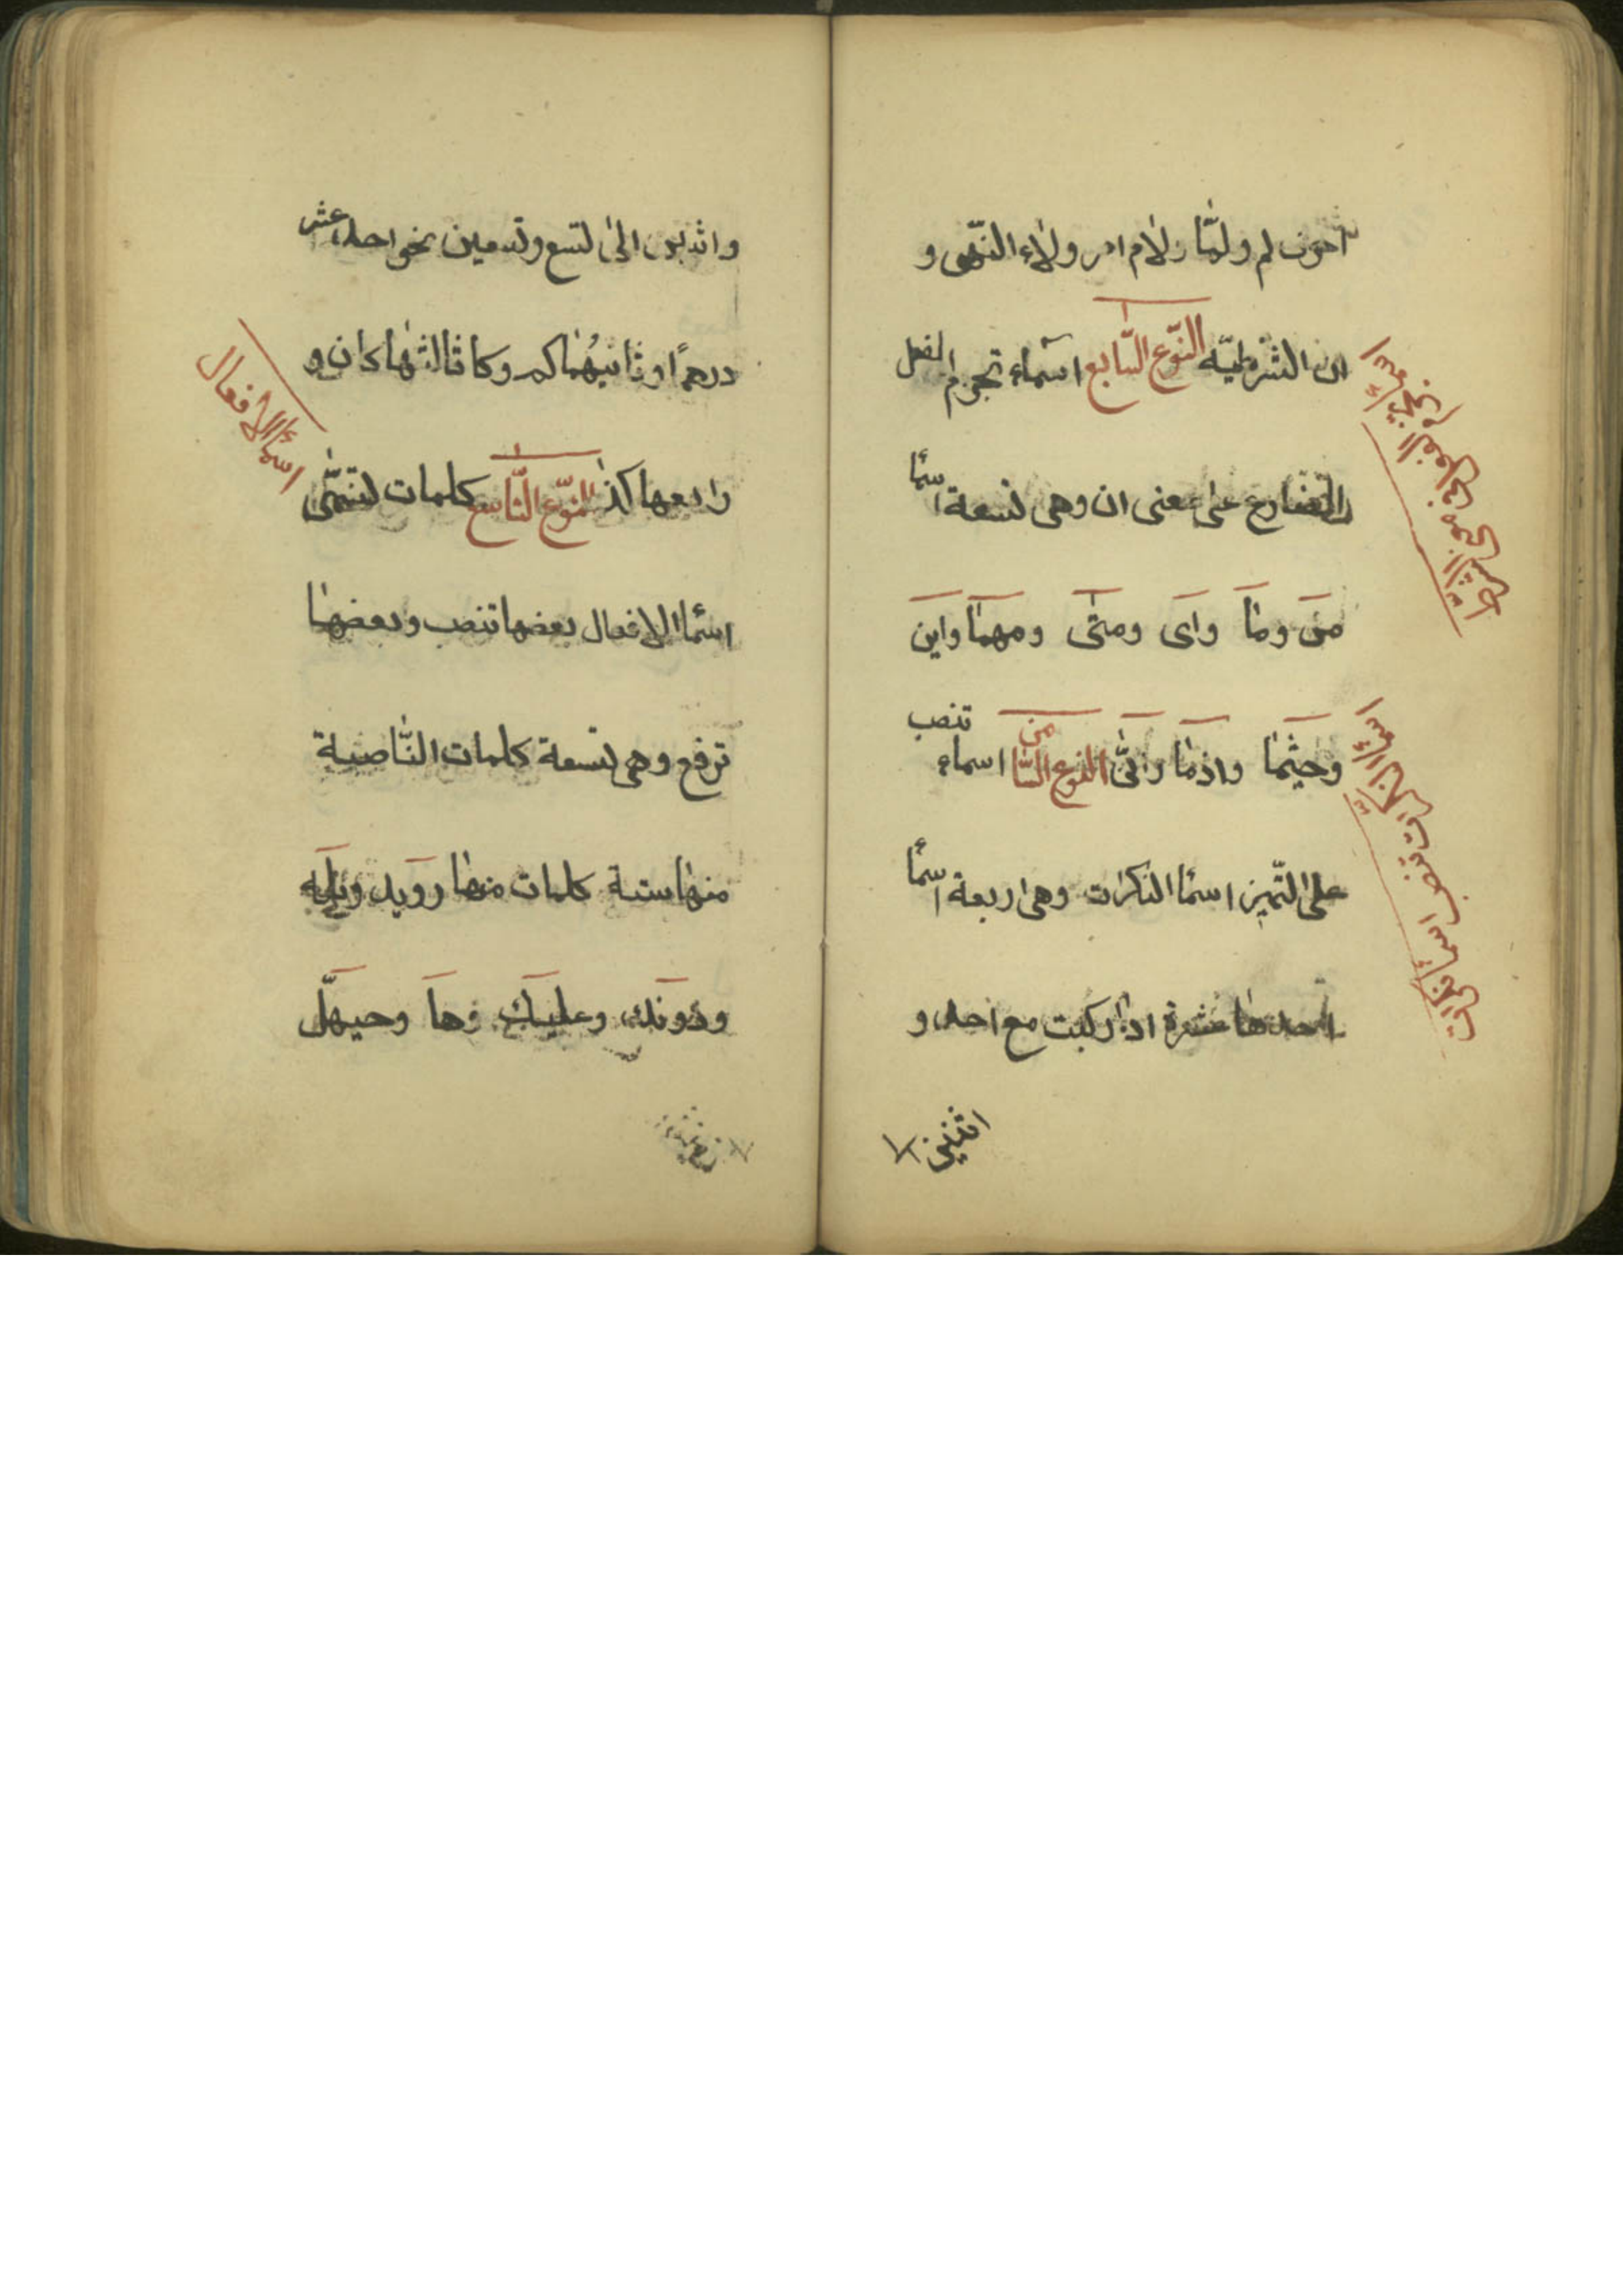 احرف لم ولمّا ولام امر ولاء النّهى و
ان الشّرطيّه النّوع السّابع اسماء تجزم الفعل
المضارع على معنى ان وهى تسعة اسمًا
من وما واى ومتى ومهما واين
وحيثما واذما وانّى النوع الثّامن اسماء تنصب
على التّميز اسمًا النكرات وهى اربعة اسمًا
احدها عشرة اذا ركبت مع احد و
اثنين
اسماء تنصب اسماء نكرات
واثنين الى تسع وتسعين نحو احد عشر
درهمًا وثانيهما كم وكا ثالثها كان و
رابعها كذا النّوع التّاسع كلمات تسمّى
اسما الافعال بعضها تنصب وبعضها
ترفع وهى تسعة كلمات النّاصبة
منها ستة كلمات منها رويد وبله
ودونك وعليك وها وحيهّل
اسما الافعال